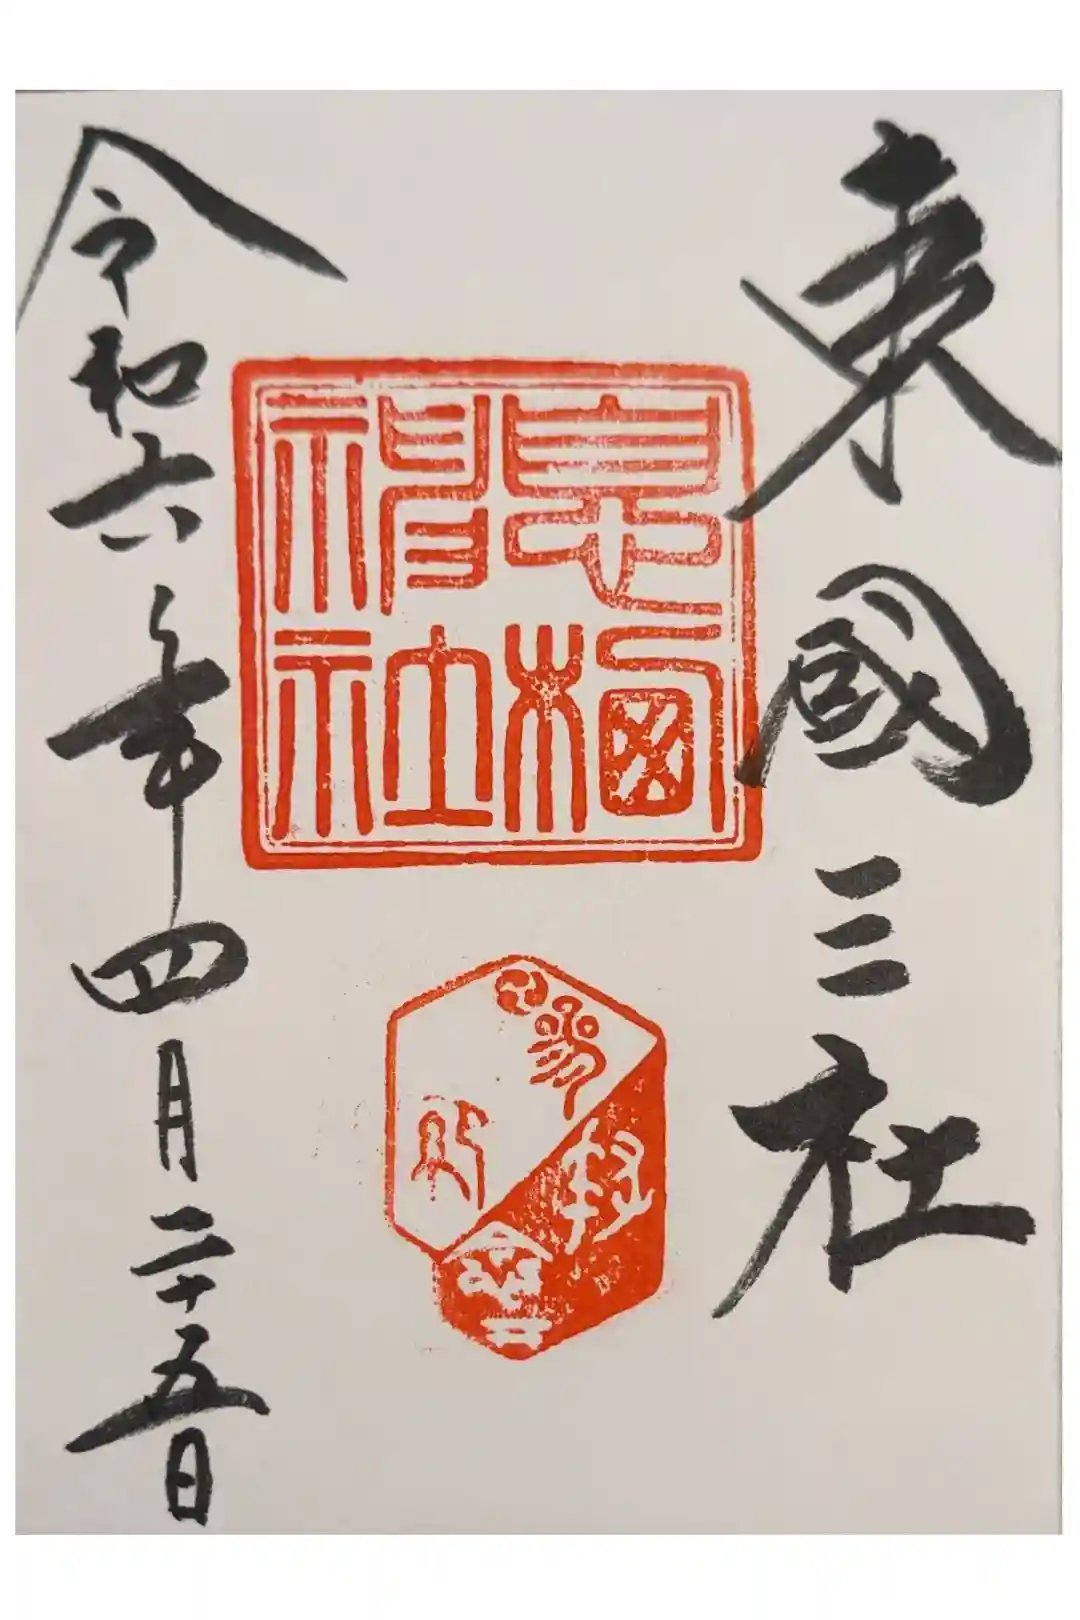 東國三社
息栖
神社
令和六年四月二十五日